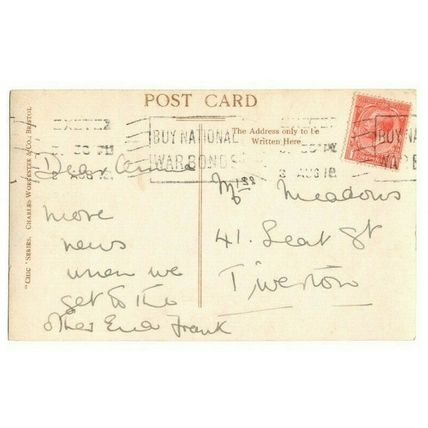 POST CARD
EXETER
BUY NATIONAL
WAR BONDS
The Address only to be
Written Here.
30 PM
8 AUG 18
BUY NA
WAR B
"CHIC" SERIES, CHARLES WORCESTER & CO., BRISTOL
Dear
more
news
when we
get to the
other End Frank
Miss Meadows
41. Leat St
Tiverton